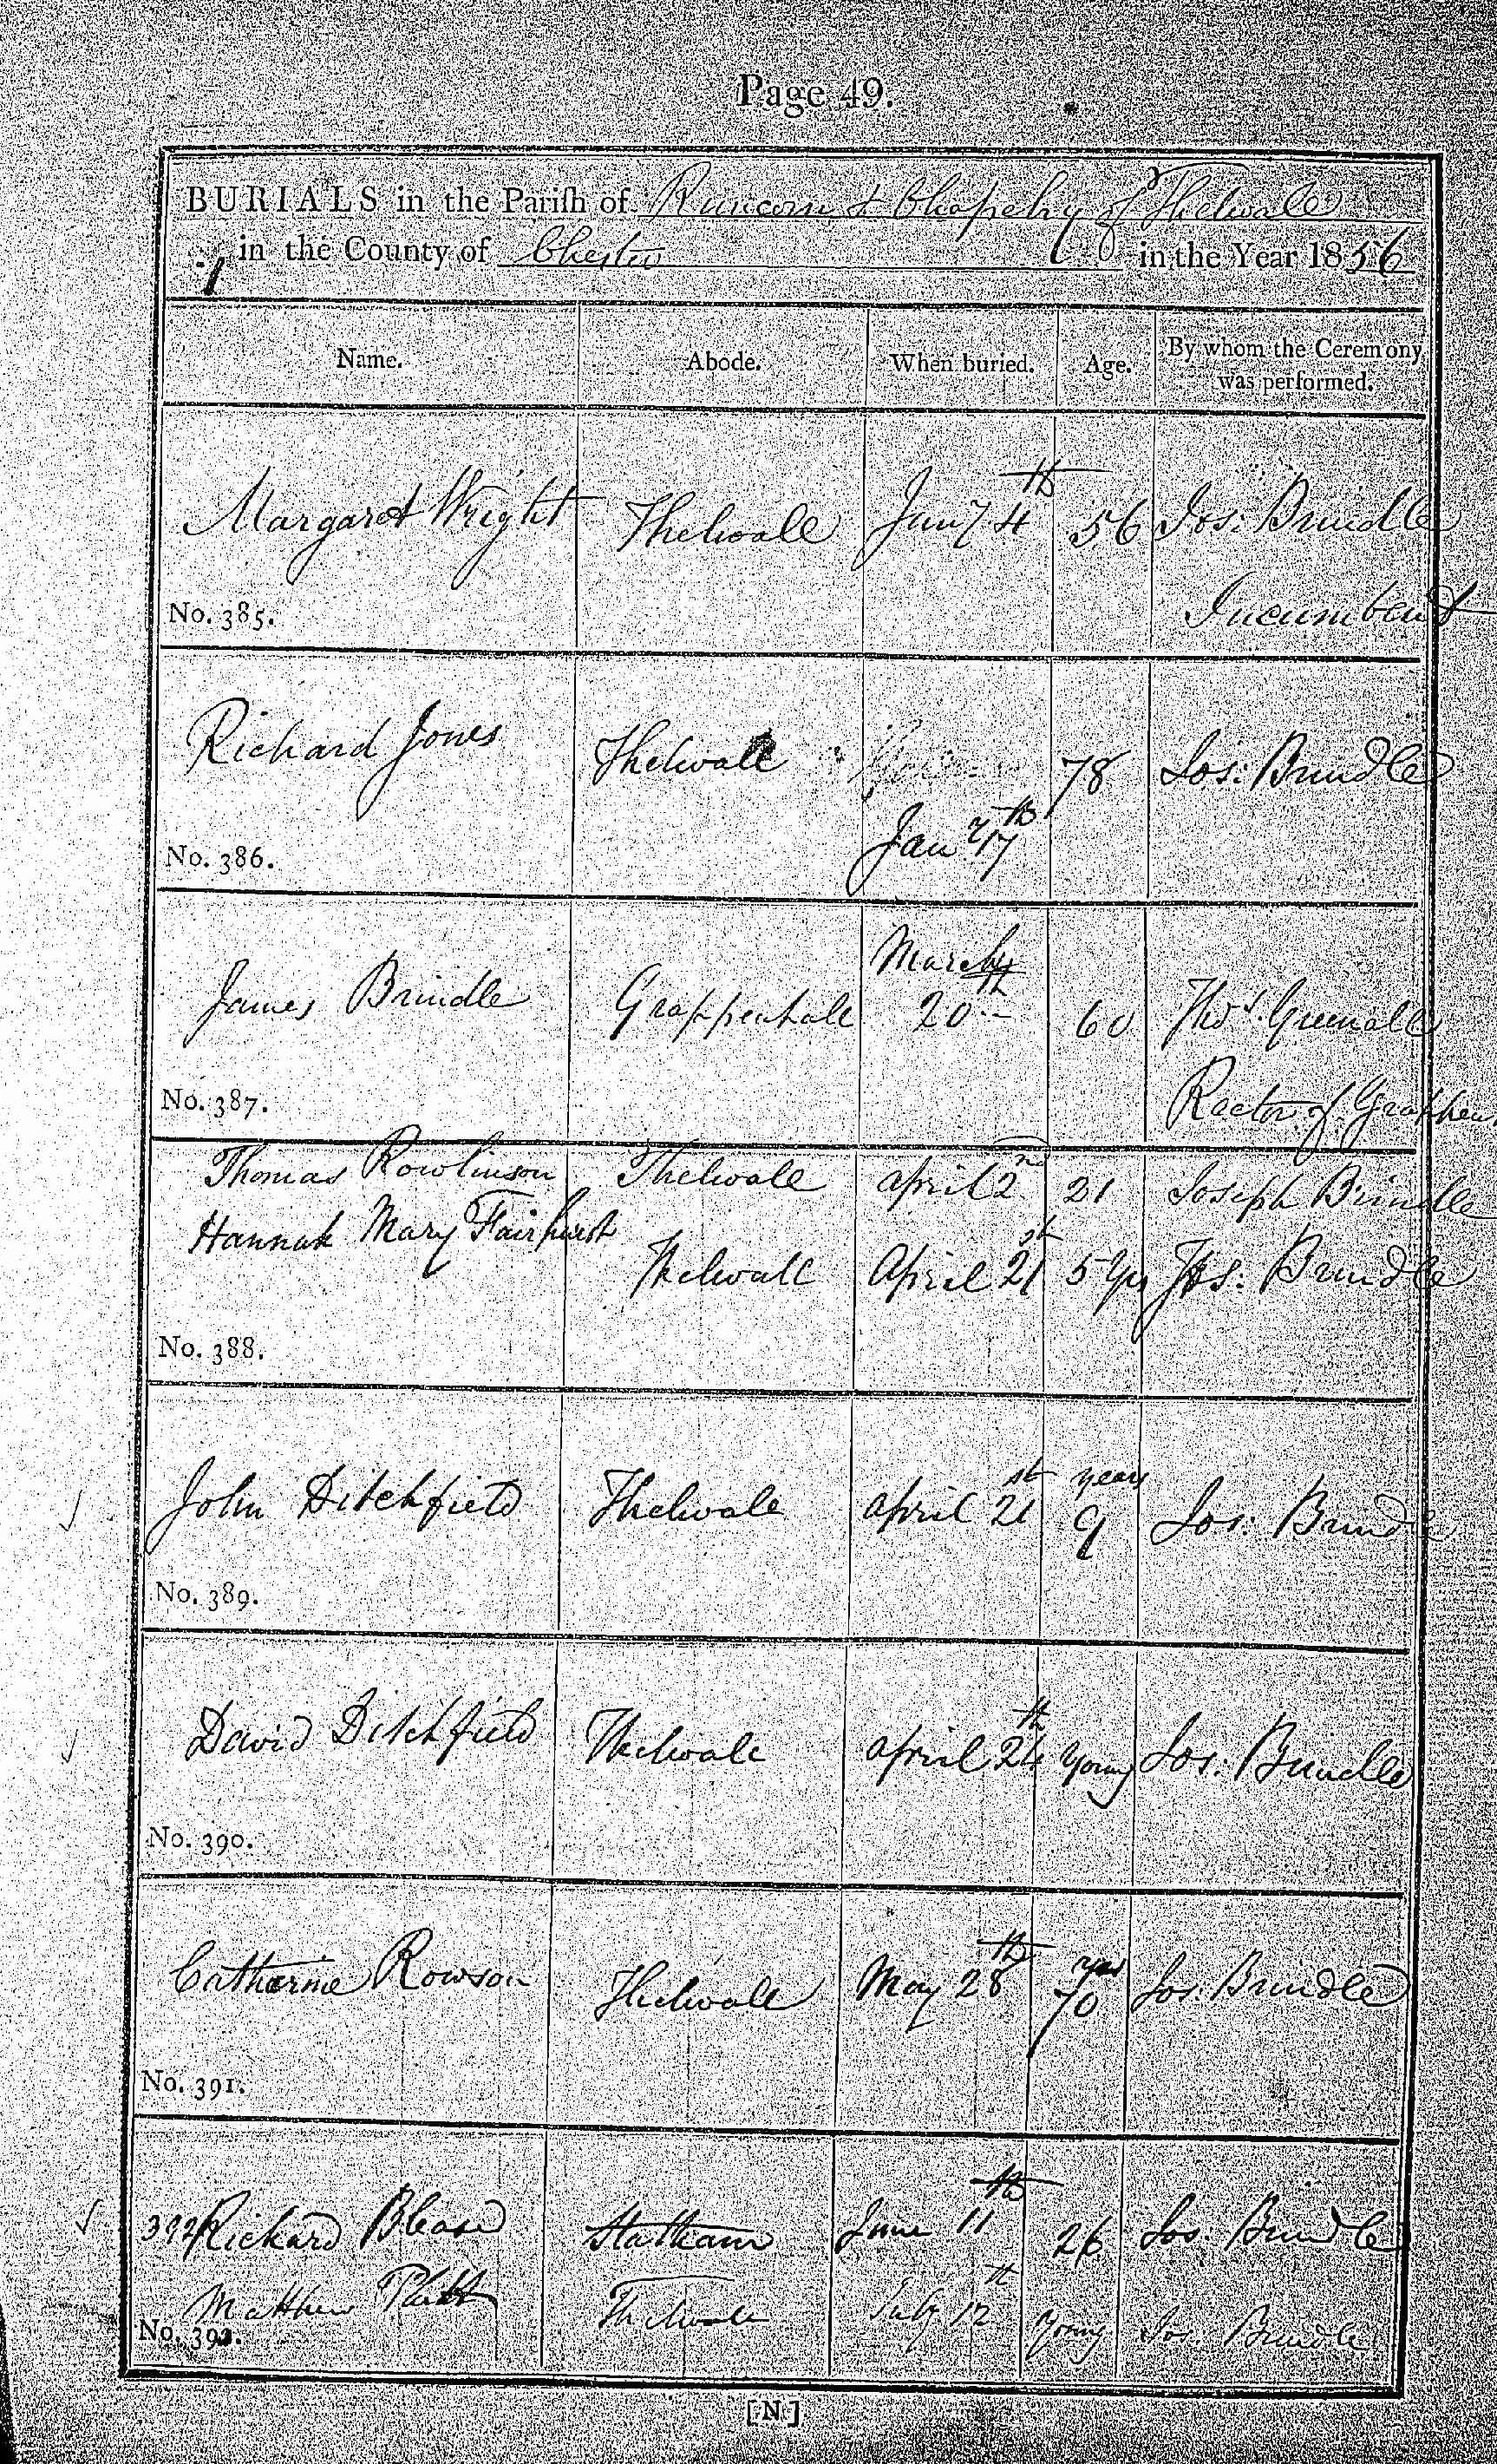 Page 49.
BURIALS in the Pariſh of Runcorn & Chapelry of Thelwall
in the County of Chester in the Year 1856
Name. Abode. When buried. Age. By whom the Ceremony was performed.
Margaret Wright Thelwall Jany 4th 56 Jos: Brindle
Incumbent
No. 385.
Richard Jones Thelwall 78 Jos: Brindle
Jany 17th
No. 386.
March
James Brindle Grappenhall 20th 60 Thos. Greenall
Rector of Grappen
No. 387.
Thomas Rowlinson Thelwall April 2nd 21 Joseph Brindle
Hannah Mary Fairhurst Thelwall April 21st 5 yrs Jos: Brindle
No. 388.
John Ditchfield Thelwall April 21st 9 years Jos: Brindle
No. 389.
David Ditchfield Thelwall April 24th Young Jos: Brindle
No. 390.
Catherine Rowson Thelwall May 28th 70 yrs Jos: Brindle
No. 391.
392 Richard Blease Statham June 11th 26 Jos: Brindle
Matthew Platt Thelwall July 12th Young Jos. Brindle
No. 393.
[N]